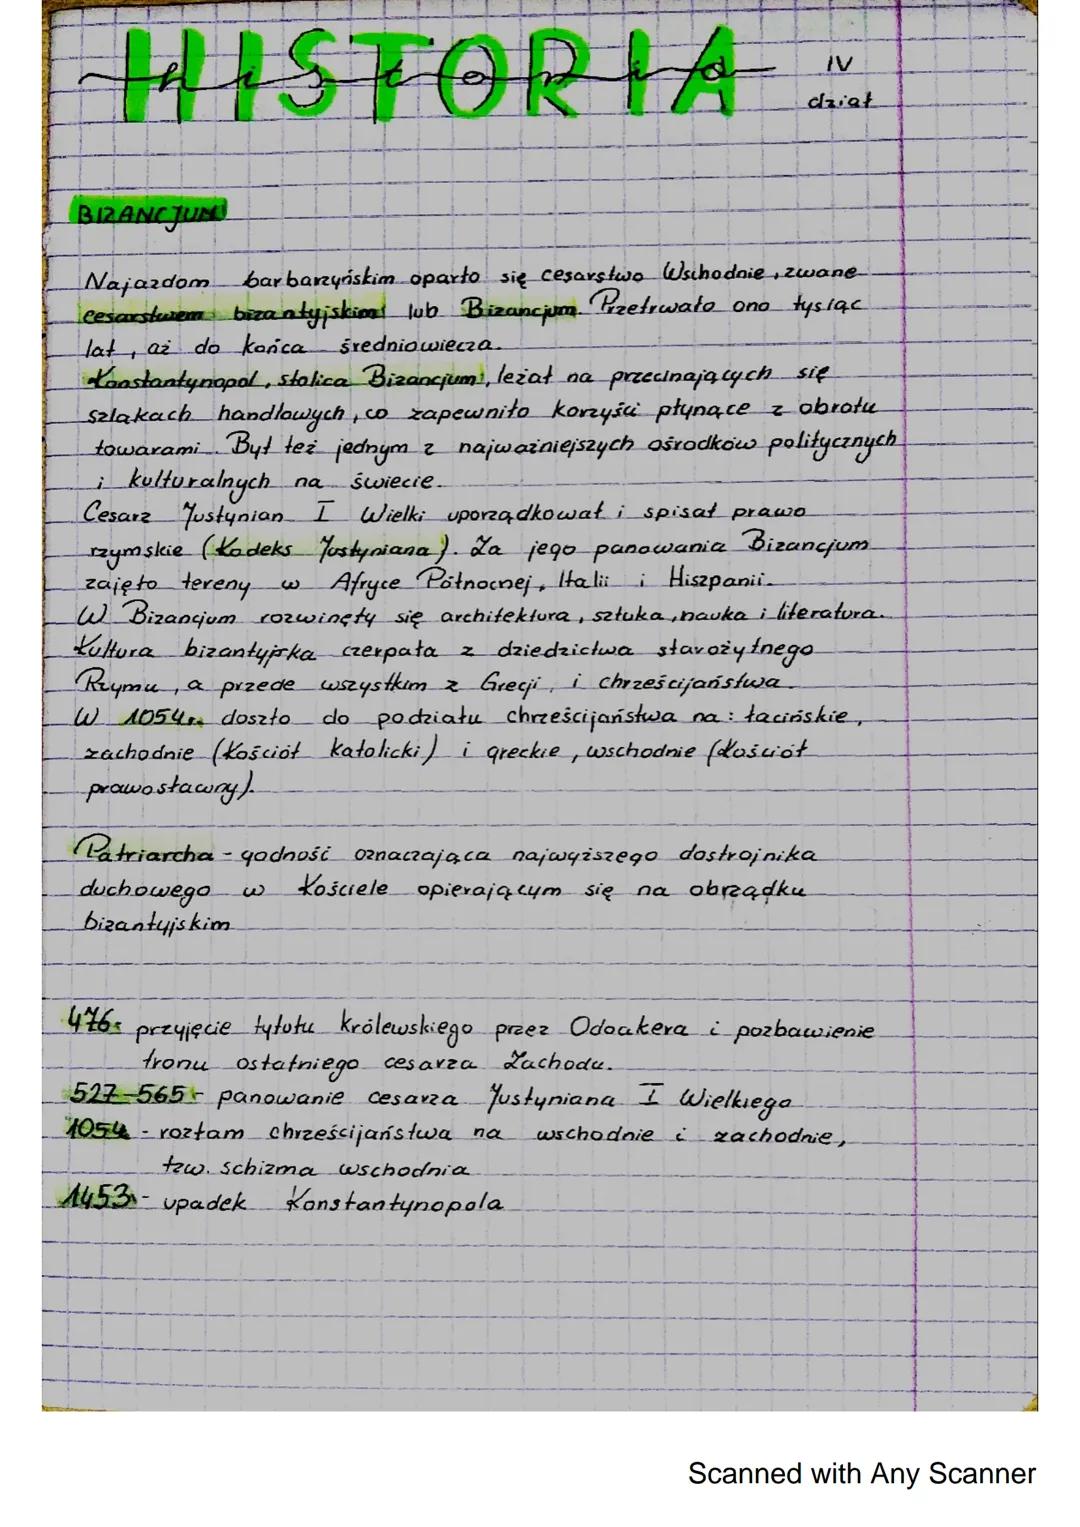 HISTORIA
historia
IV
dział
BIZANCJUM
Najazdom barbarzyńskim oparło się cesarstwo Wschodnie, zwane
cesarstwem bizantyjskim lub Bizancjum. Przetrwało ono tysiąc
lat, aż do końca średniowiecza.
Konstantynopol, stolica Bizancjum, leżał na przecinających się
szlakach handlowych, co zapewniło korzyści płynące z obrotu
towarami. Był też jednym z najważniejszych ośrodków politycznych
i kulturalnych na świecie.
Cesarz Justynian I Wielki uporządkował i spisał prawo
rzymskie (Kodeks Justyniana). Za jego panowania Bizancjum
zajęło tereny w Afryce Północnej, Italii i Hiszpanii.
W Bizancjum rozwinęły się architektura, sztuka, nauka i literatura.
Kultura bizantyjska czerpała z dziedzictwa starożytnego
Rzymu, a przede wszystkim z Grecji, i chrześcijaństwa.
W 1054r. doszło do podziału chrześcijaństwa na: łacińskie,
zachodnie (Kościół katolicki) i greckie, wschodnie (Kościół
prawosławny).
Patriarcha - godność oznaczająca najwyższego dostojnika
duchowego w Kościele opierającym się na obrządku
bizantyjskim
476- przyjęcie tytułu królewskiego przez Odoakera i pozbawienie
tronu ostatniego cesarza Zachodu.
527-565 - panowanie cesarza Justyniana I Wielkiego
1054 - rozłam chrześcijaństwa na wschodnie i zachodnie,
tzw. schizma wschodnia
1453 - upadek Konstantynopola
Scanned with Any Scanner